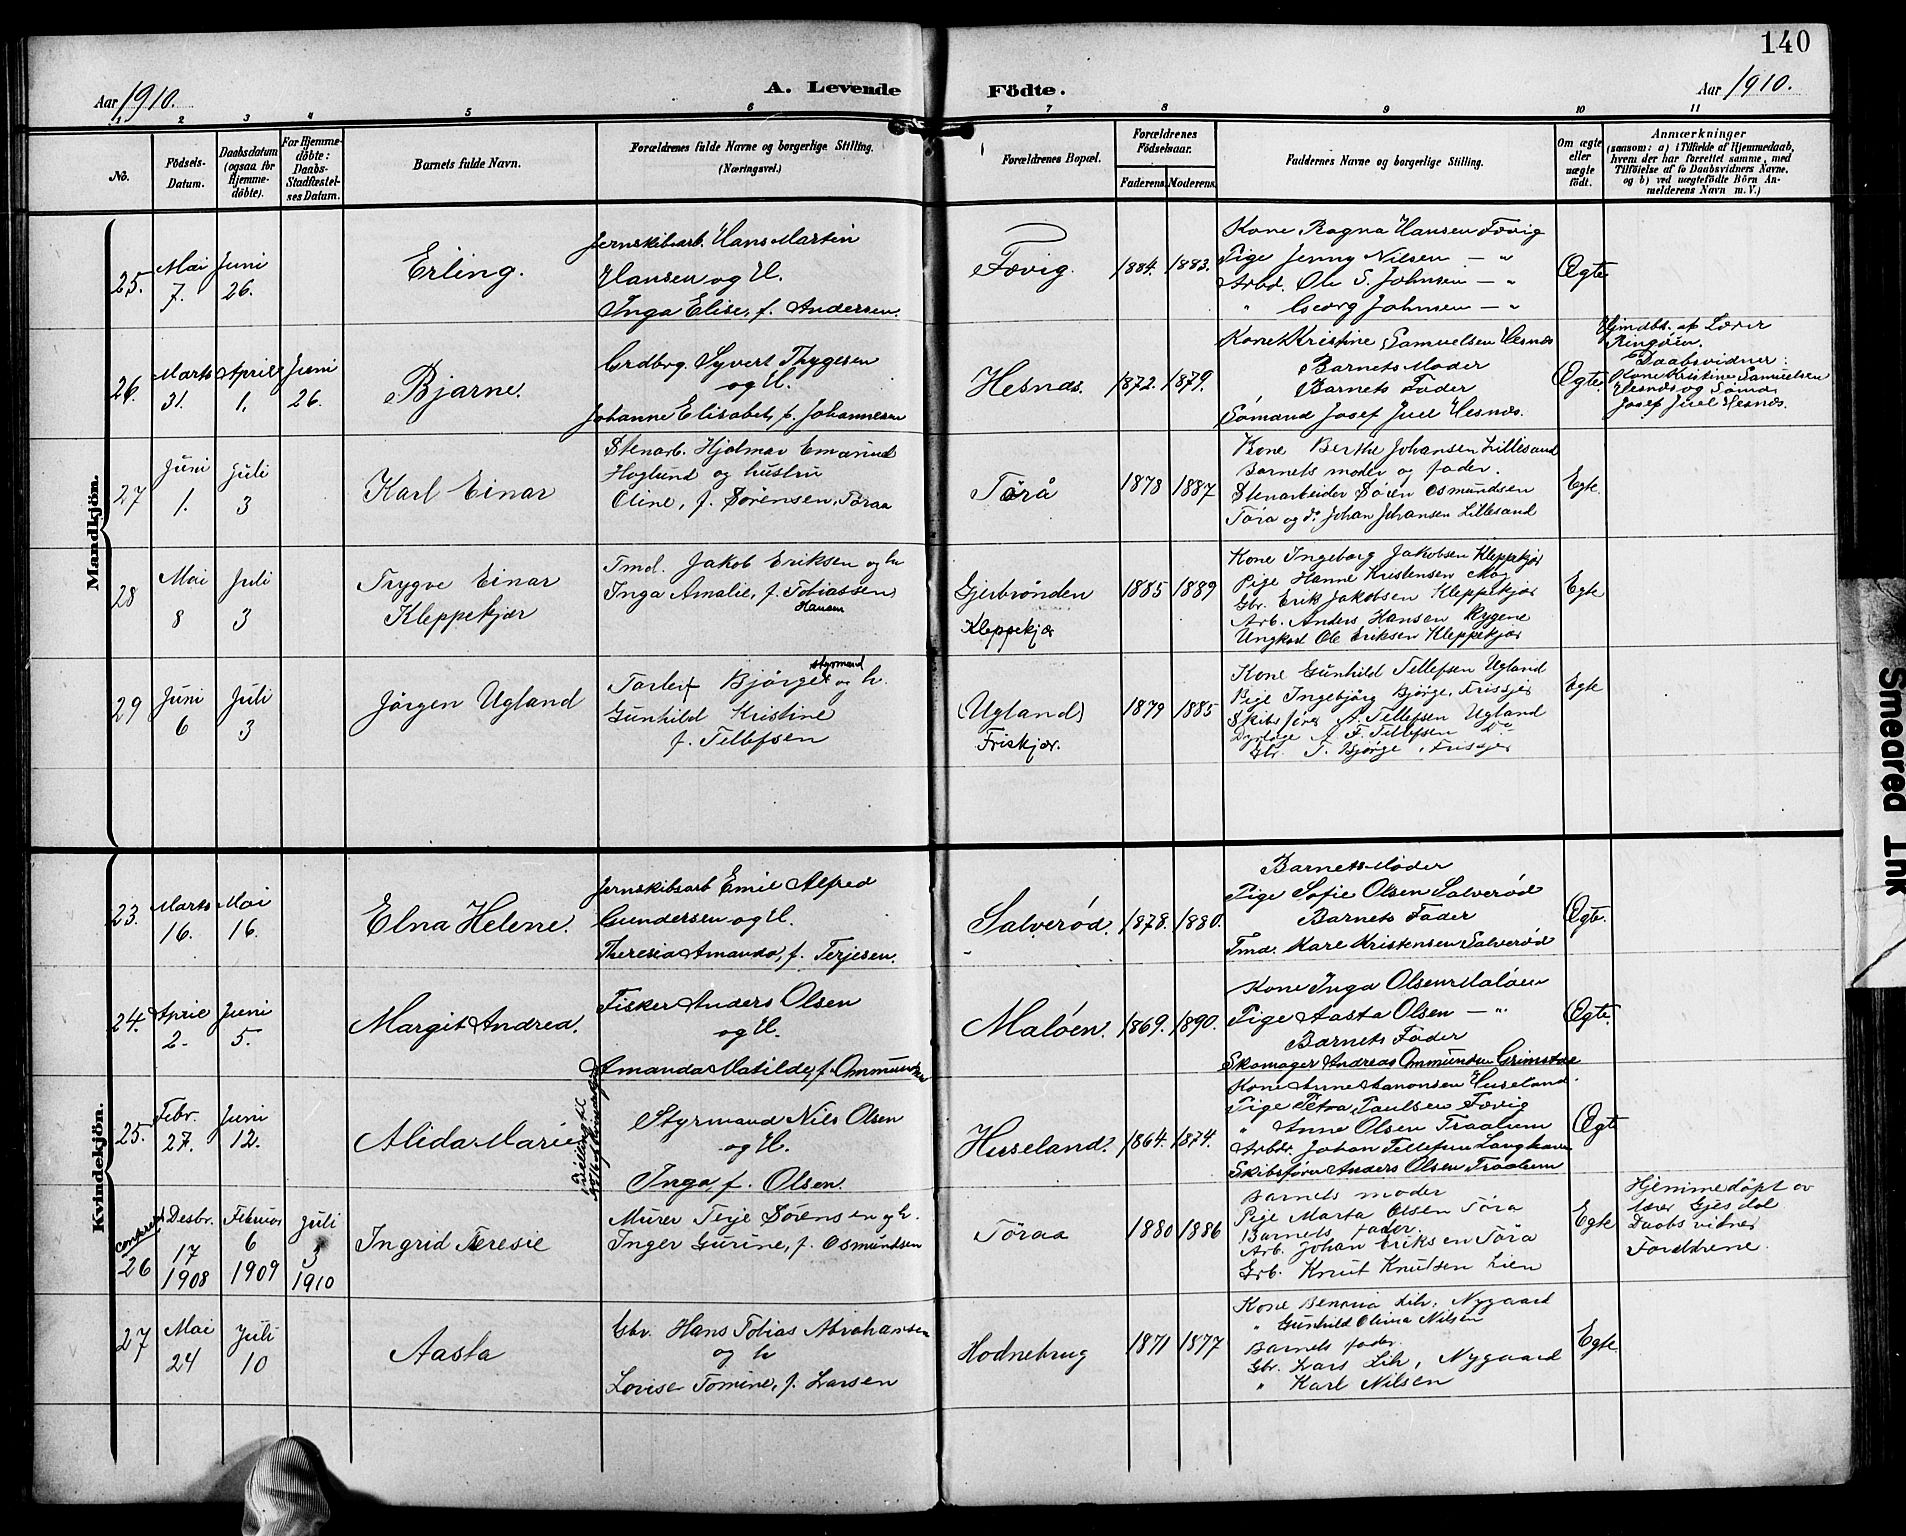 140
Aar 1910.
A. Levende
Födte.
Aar 1910.
1 2 3 4 5 6 7 8 9 10 11
No.
Födsels-
Datum.
Daabsdatum
(ogsaa for
Hjemme-
döbte).
For Hjemme-
döbte:
Daabs-
Stadfæstel-
ses Datum.
Barnets fulde Navn.
Forældrenes fulde Navne og borgerlige Stilling.
(Næringsvei.)
Forældrenes Bopæl.
Forældrenes
Födselsaar.
Faderens.
Moderens.
Faddernes Navne og borgerlige Stilling.
Om ægte
eller
uægte
födt.
Anmærkninger
(saasom: a) i Tilfælde af Hjemmedaab,
hvem der har forrettet samme, med
Tilföielse af to Daabsvidners Navne.
og b) ved uægtefödte Börn An-
melderens Navn m. V.)
Mandkjön.
25.
Mai
7.
Juni
26.
Erling.
Jernskibsarb. Hans Martin
Hansen og H.
Inga Elise, f. Andersen.
Fævig.
1884.
1883.
Kone Ragna Hansen Fævig
Pige Jenny Nilsen — "
Arbd. Ole S. Johnsen — "
" Georg Johnsen — "
Ægte
26.
Marts
31.
April
1.
Juni
26.
Bjarne.
Grdbrg. Syvert Thygesen
og H.
Johanne Elisabet, f. Johannesen
Hesnæs.
1872.
1879.
Kone Kristine Samuelsen Hesnæs
Barnets Moder
Barnets Fader
Sømand Josef Juel Hesnæs.
Ægte.
Hjmdbt. af Lærer
Ringöen.
Daabsvidner:
Kone Kristine Samuelsen
Hesnæs og Sömd.
Josef Juel Hesnæs.
27
Juni
1.
Juli
3
Karl Einar
Stenarb. Hjalmar Emanuel
Hoglund og hustru
Oline, f. Sørensen, Töraa
Törå
1878
1887
Kone Berthe Johansen Lillesand
Barnets moder og fader.
Stenarbeider Sören Osmundsen
Töra og do Johan Johansen Lillesand
Egte.
28
Mai
8
Juli
3
Trygve Einar
Kleppekjær
Tmd. Jakob Eriksen og h
Inga Amalie, f. Tobiassen
Hansen
Gjerbrönden
Kleppekjær
1885
1889
Kone Ingeborg Jakobsen Kleppekjær
Pige Hanne Kristensen Moy
Gbr. Erik Jakobsen Kleppekjær
Arb. Anders Hansen Rygene
Ungkarl Ole Eriksen Kleppekjær
Egte
29
Juni
6
Juli
3
Jörgen Ugland
styrmand
Tarlef Bjørge og h.
Gunhild Kristine
f. Tellefsen
(Ugland)
Friskjær.
1879
1885
Kone Gunhild Tellefsen Ugland
Pige Ingebjörg Bjørge, Friskjær
Skibsfører A. Tellefsen Ugland
Dyrlæge A. F. Tellefsen Do
Gbr. T. Bjørge, Friskjær
Egte
Kvindekjön.
23.
Marts
16.
Mai
16.
Elna Helene.
Jernskibsarb Emil Alfred
Gundersen og H.
Theresia Amanda, f. Terjesen.
Salveröd.
1878.
1880.
Barnets Moder
Pige Sofie Olsen Salveröd
Barnets Fader
Tmd. Karl Kristensen Salveröd
Ægte.
24.
April
2.
Juni
5.
Margit Andrea.
Fisker Anders Olsen
og H.
Amanda Matilde, f. Ommundsen
Malöen.
1869.
1890.
Kone Inga Olsen Malöen
Pige Aasta Olsen — "
Barnets Fader
Skomager Andreas Ommundsen Grimstad
Ægte.
25.
Febr.
27.
Juni
12.
Alida Marie
Tvilling til
Styrmand Nils Olsen
og H.
Inga, f. Olsen.
Huseland.
1864.
1874.
Kone Anne Aanonsen Huseland.
Pige Petra Paulsen Fævig
" Anne Olsen Traalum
Arbdr. Johan Tellefsen Langhave
Skibsfører Anders Olsen Traalum
Ægte
26
Desbr.
17
1908
Februar
6
1909
Juli
3
1910
Ingrid Teresie
Murer Terje Sörensen og h.
Inger Gurine, f. Osmundsen
Töraa
1880
1886
Barnets moder
Pige Marta Olsen Töra
Barnets fader.
Arb. Johan Eriksen Töra
Grb. Knut Knutsen Lien
Egte
Hjemmedöpt av
lærer Gjesdal
Daabsvidner
Foreldrene.
27
Mai
24
Juli
10
Aasta
Gbr. Hans Tobias Abrahamsen
og h
Lovise Tomine, f. Larsen
Hodnebrug
1871
1877
" Gunhild Olivia Nilsen
Barnets fader.
Gbr. Lars Lib, Nygaard
" Karl Nilsen
Egte.
Smeared Ink